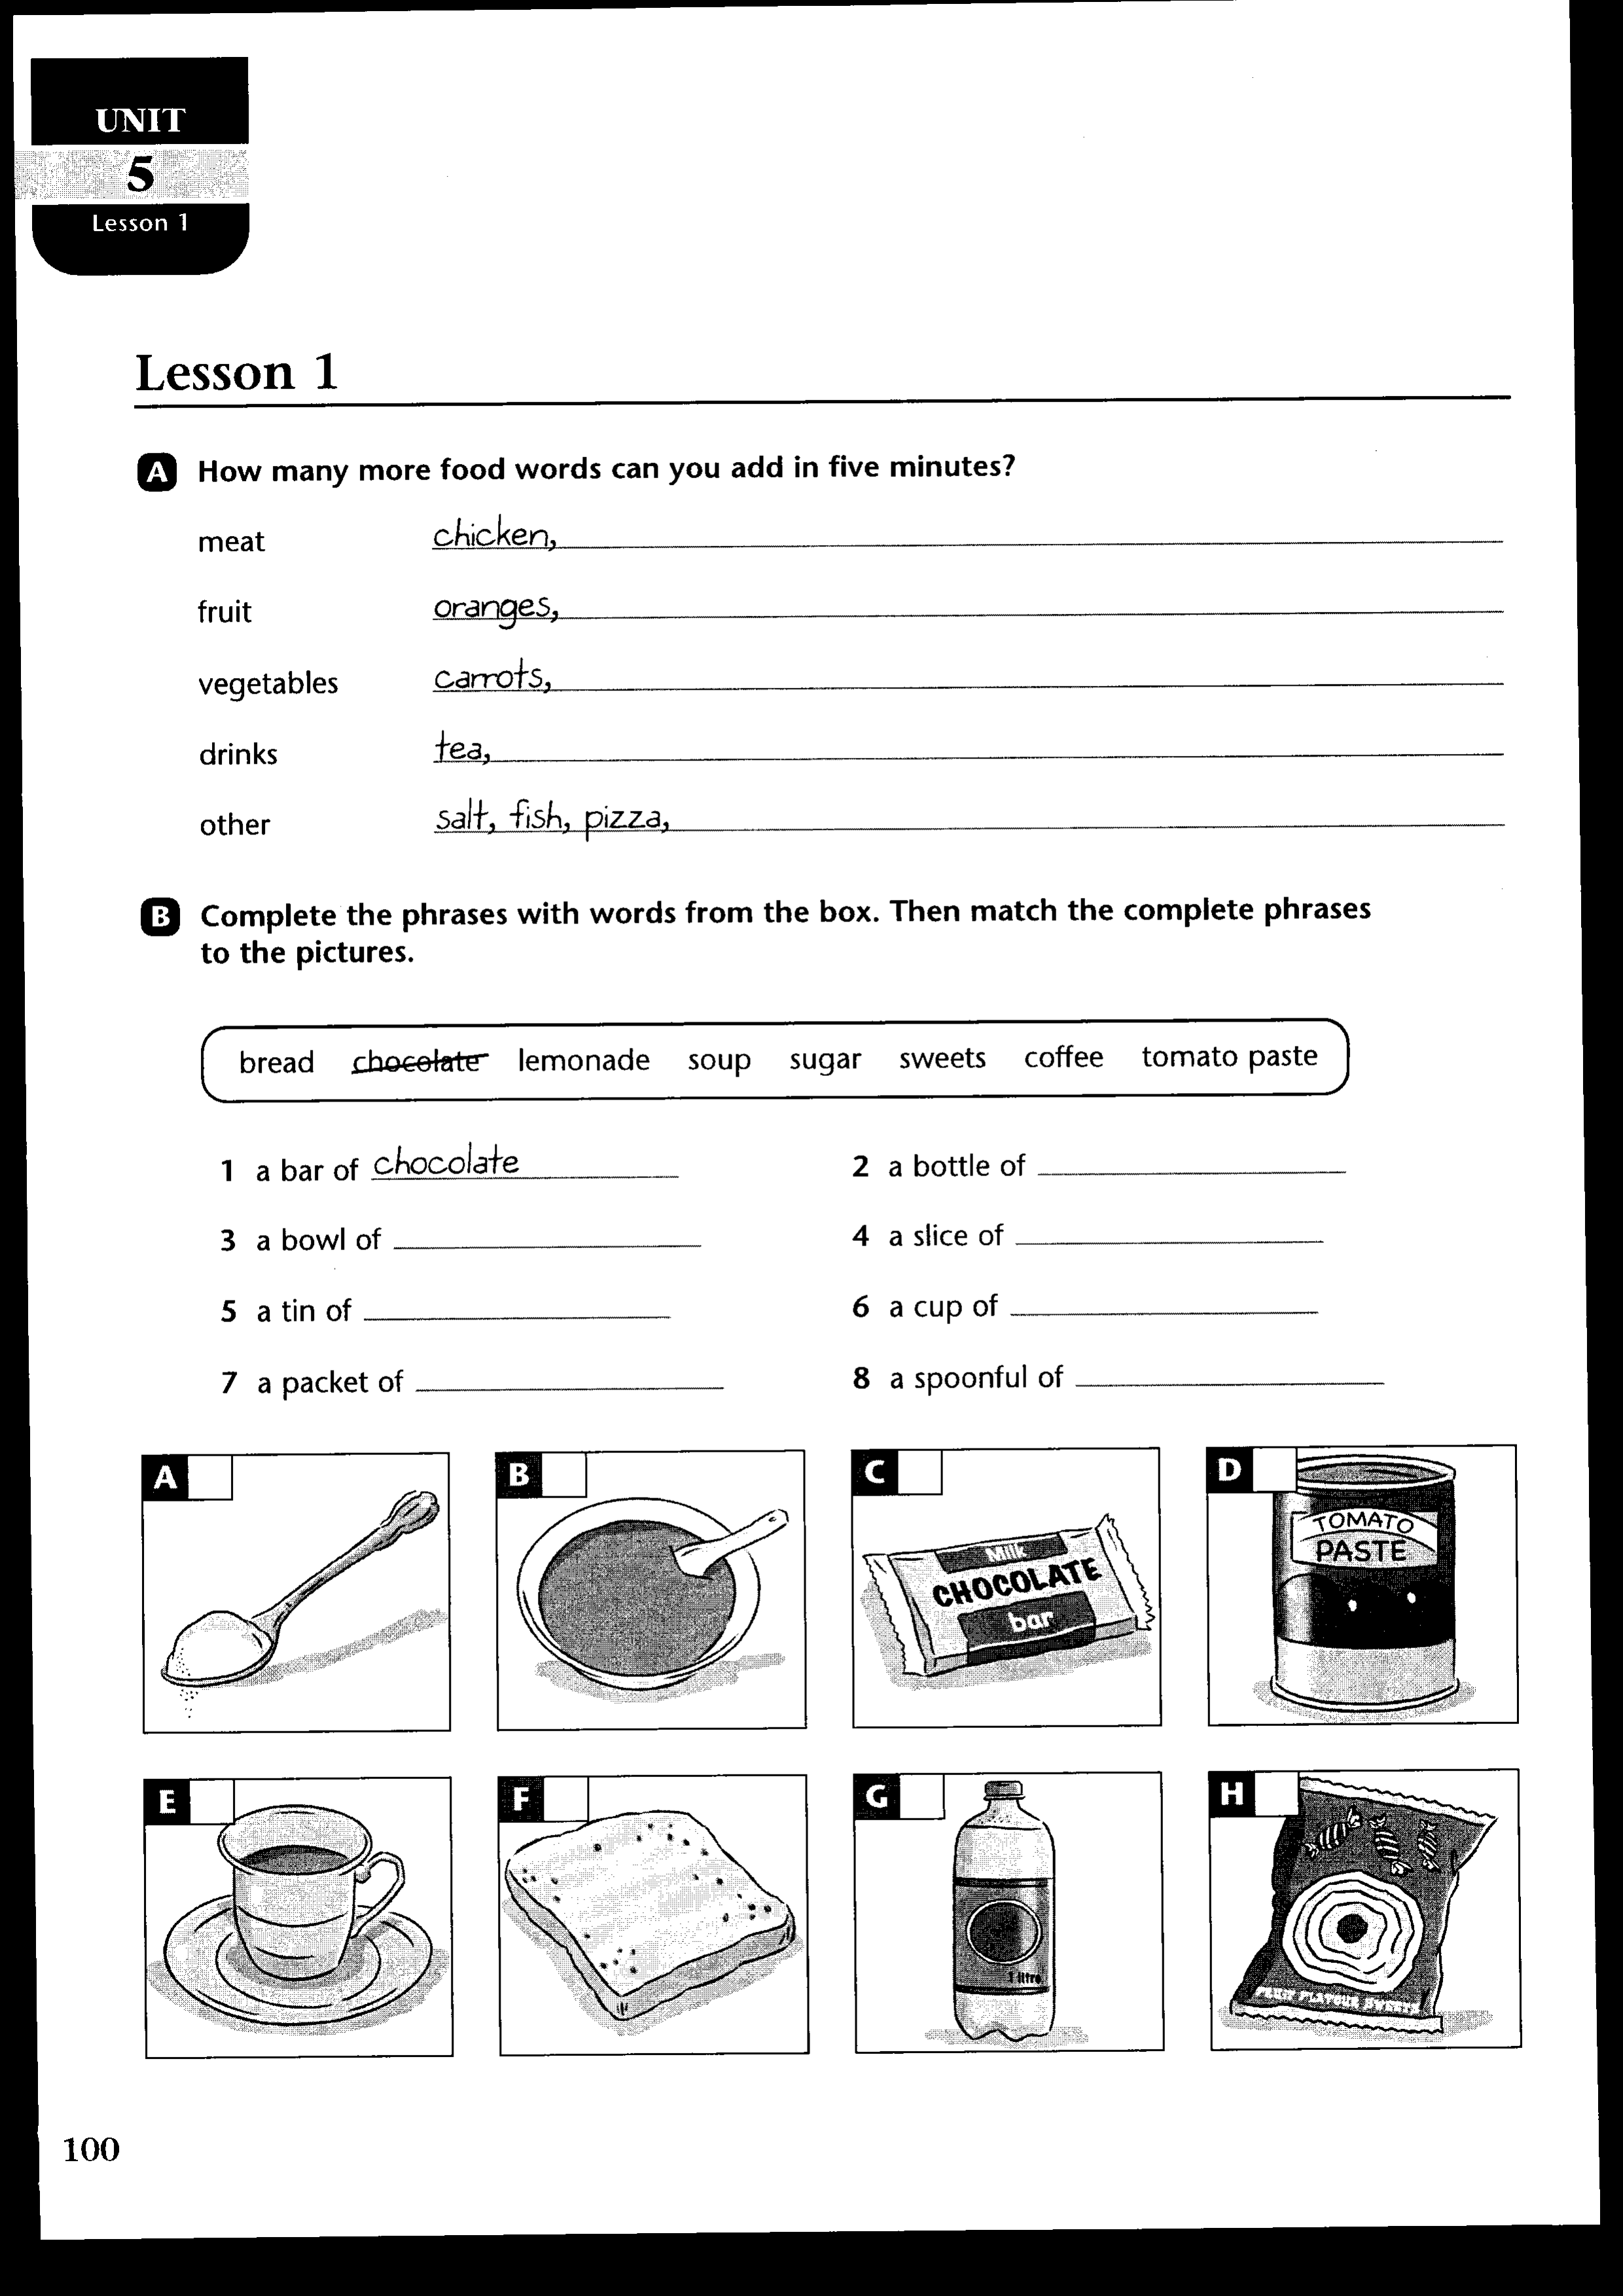 UNIT
5
Lesson 1
Lesson 1
A How many more food words can you add in five minutes?
meat chicken,
fruit oranges,
vegetables carrots,
drinks tea,
other salt, fish, pizza,
B Complete the phrases with words from the box. Then match the complete phrases
to the pictures.
bread chocolate lemonade soup sugar sweets coffee tomato paste
1 a bar of chocolate 2 a bottle of
3 a bowl of 4 a slice of
5 a tin of 6 a cup of
7 a packet of 8 a spoonful of
A B C D
Milk
CHOCOLATE
bar
TOMATO
PASTE
E F G H
1 litre
FRUIT FLAVOUR SWEETS
100